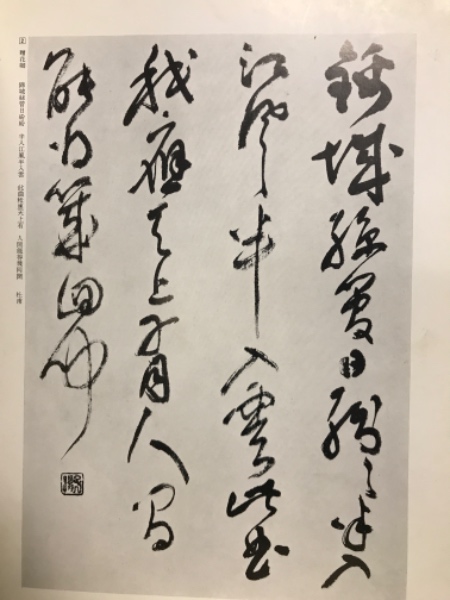 錦城絲管日紛々半入
江風半入雲此曲
祇應天上有人間
能得幾回聞
贈花卿 錦城絲管日紛紛 半入江風半入雲 此曲祇應天上有 人間能得幾回聞 杜甫